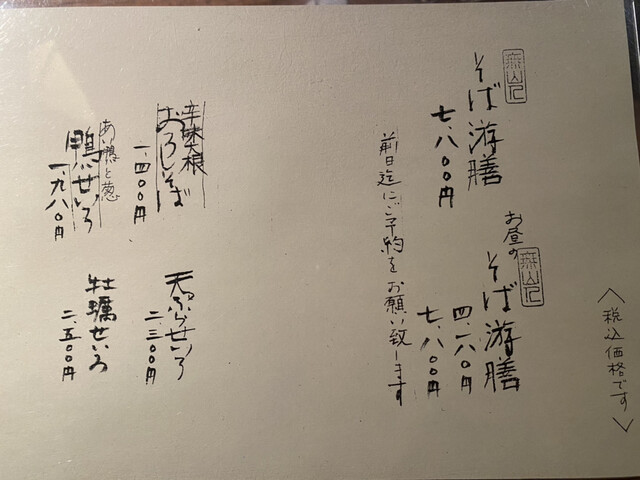 〈税込価格です〉
無山记
そば游膳
七、八〇〇円
お昼の
無山记
そば游膳
四、一八〇円
七、八〇〇円
前日迄にご予約をお願い致します
辛味大根
おろしそば
一、四〇〇円
天ぷらせいろ
二、三〇〇円
あい鴨と葱
鴨ぜいろ
一、九八〇円
牡蠣せいろ
二、五〇〇円